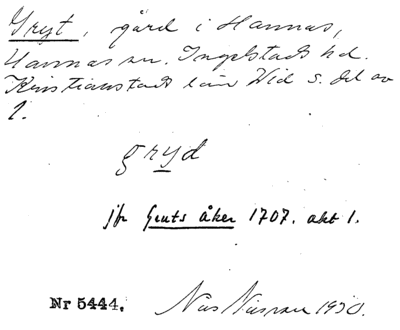 Gryt, gård i Hannas,
Hannas sn. Ingelstads hd.
Kristianstads län Vid s. del av
1.
gryd
jfr Gruts åker 1707. akt 1.
Nr 5444. Nils 1930.